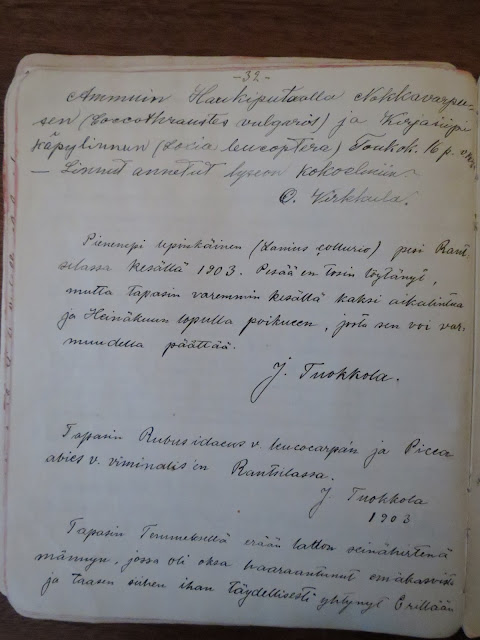 -32-
Ammuin Haukiputaalla Nokkavarpu-
sen (Coccothraustes vulgaris) ja Kirjasiipi
käpylinnun (Loxia leucoptera) Toukok. 16 p.
— Linnut annetut lyseon kokoelmiin.
O. Kirkkala.
Pienempi lepinkäinen (Lanius collurio) pesi Rant-
silassa kesällä 1903. Pesää en tosin löytänyt,
mutta tapasin varemmin kesällä kaksi aikalintua
ja Heinäkuun lopulla poikueen, josta sen voi var-
muudella päättää.
J. Tuokkola.
Tapasin Rubus idaeus v. leucocarpan ja Picea
abies v. viminalis'in Rantsilassa.
J Tuokkola
1903
Tapasin Temmeksellä erään ladon seinähirtenä
männyn, jossa oli oksa
ja taasen siihen ihan täydellisesti yhtynyt Erittäin